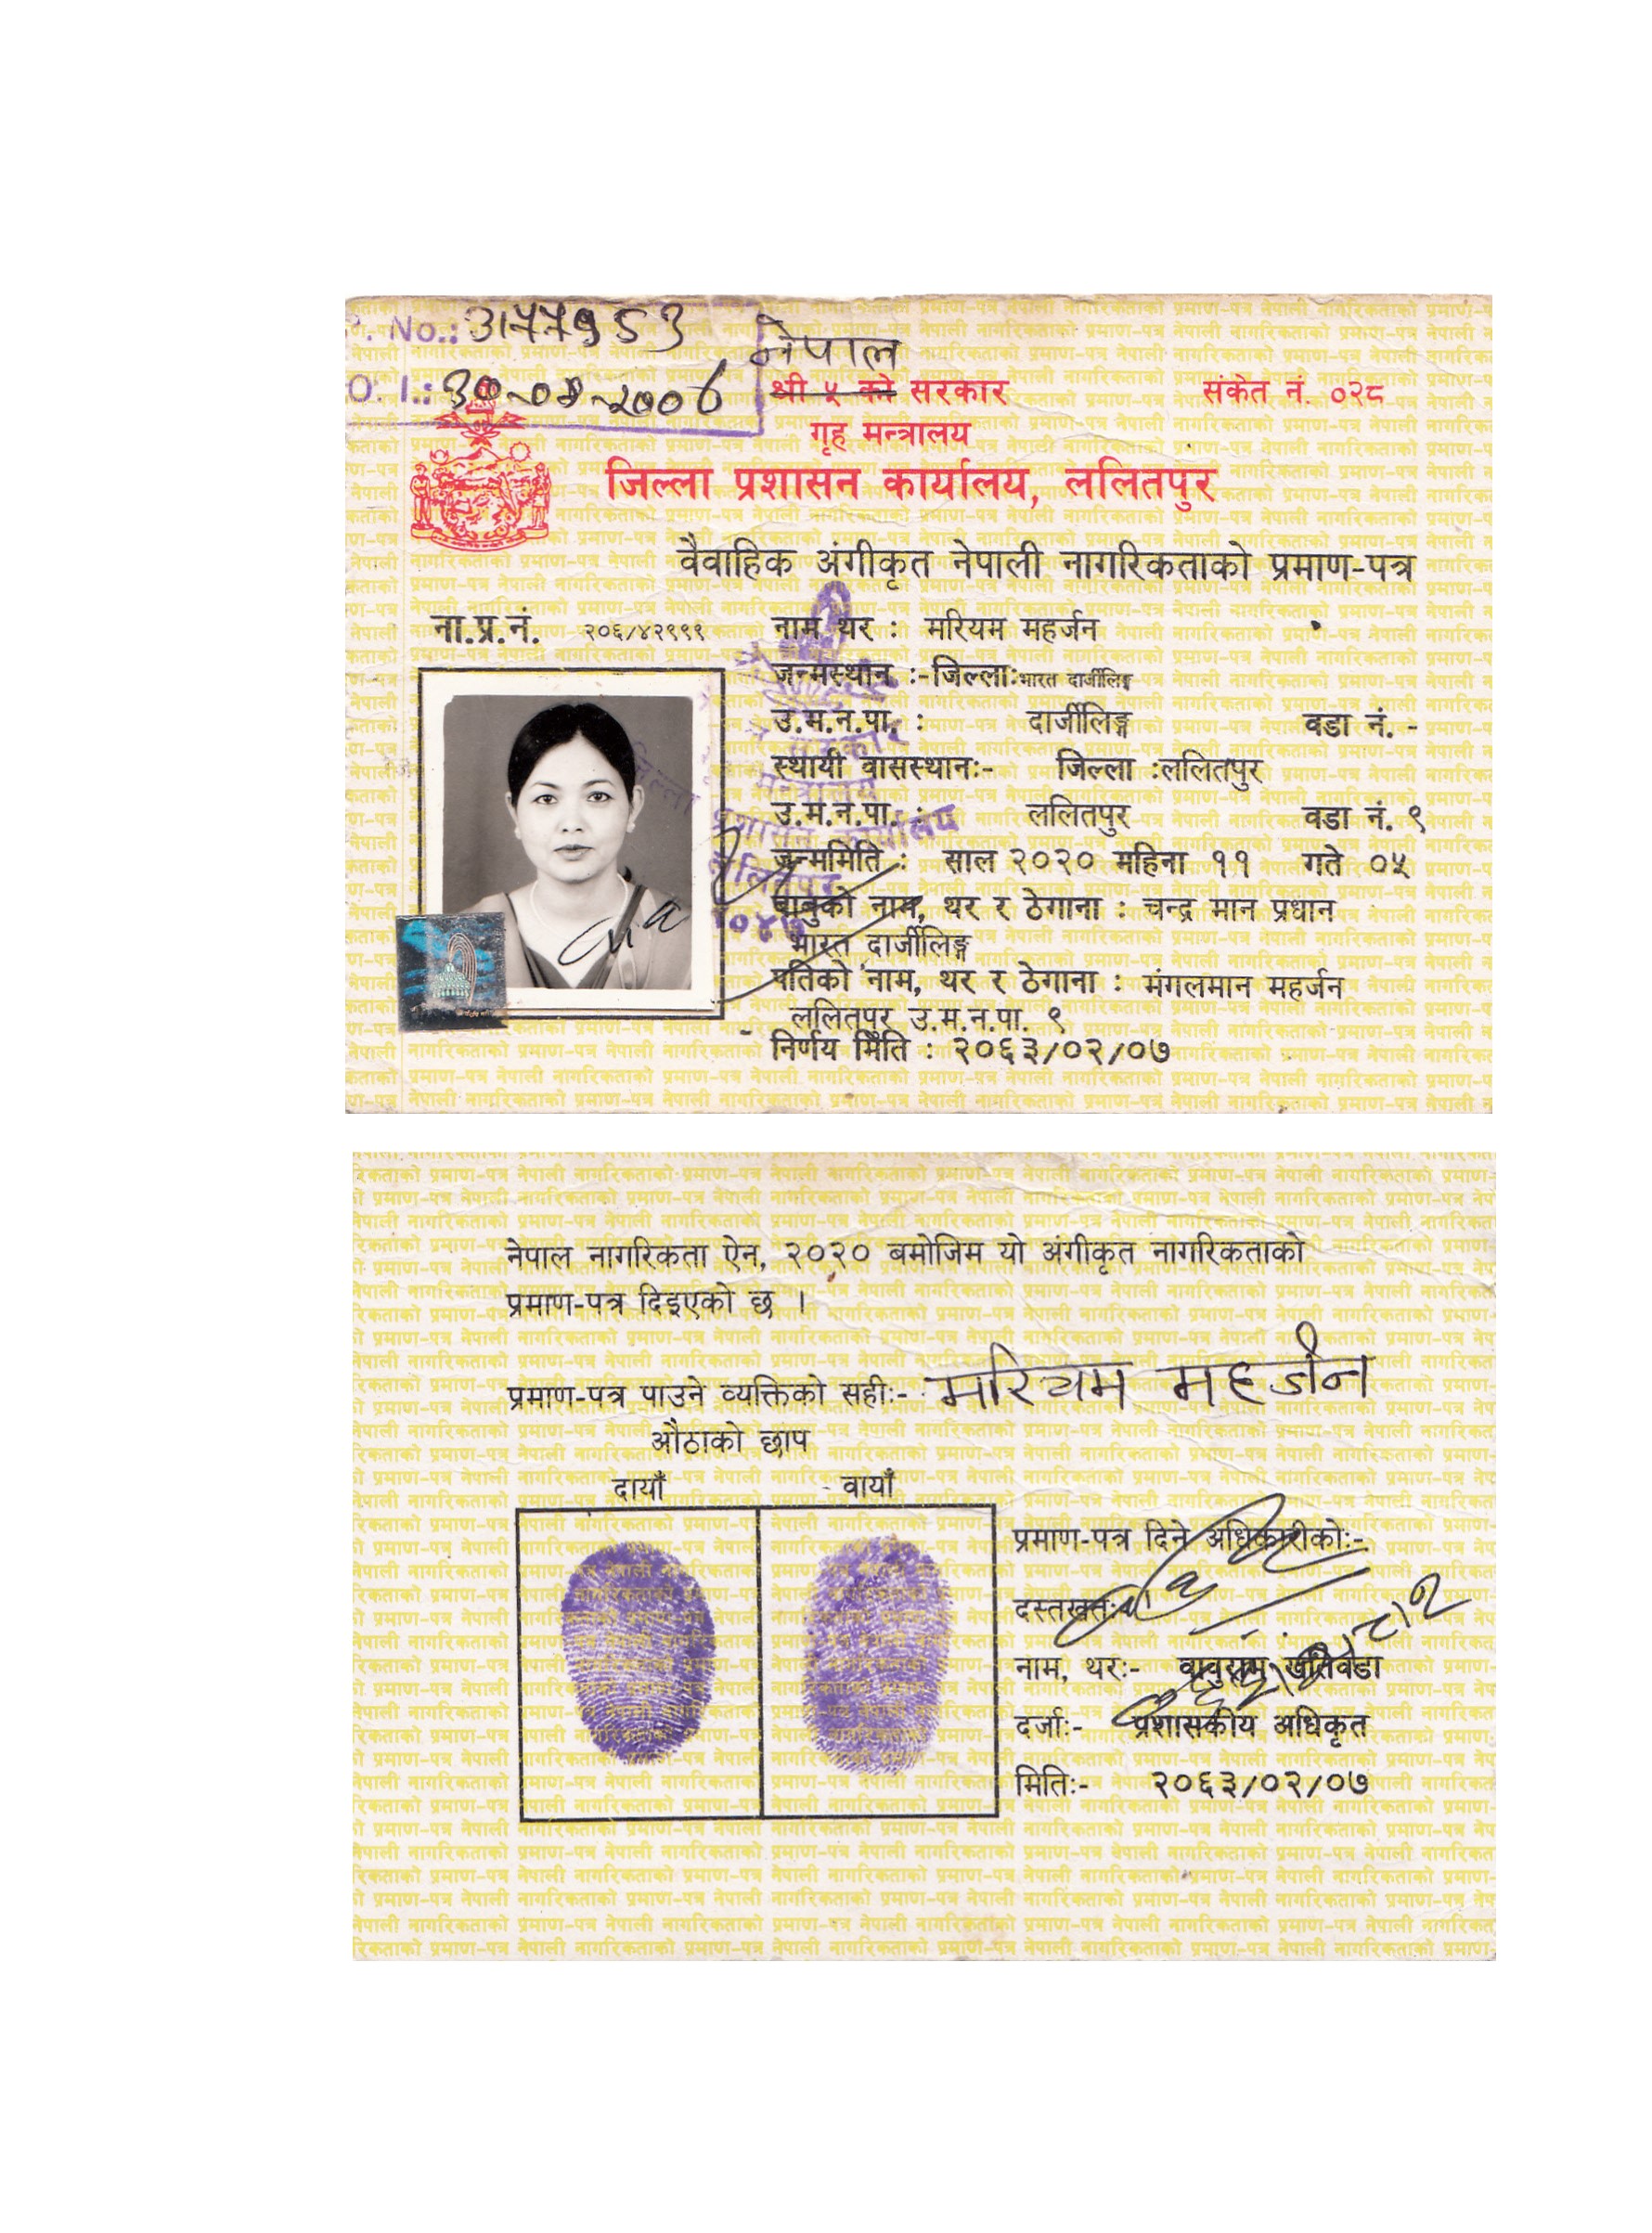 . No.: 3177953
O. I.: 30-08-2006
नेपाल
श्री ५ को सरकार
संकेत नं. ०२८
गृह मन्त्रालय
जिल्ला प्रशासन कार्यालय, ललितपुर
वैवाहिक अंगीकृत नेपाली नागरिकताको प्रमाण-पत्र
ना.प्र.नं. २०६/४२९९९
नाम थर : मरियम महर्जन
जन्मस्थान :-जिल्ला:भारत दार्जीलिङ्ग
उ.म.न.पा. : दार्जीलिङ्ग वडा नं. -
स्थायी वासस्थान:- जिल्ला :ललितपुर
उ.म.न.पा. : ललितपुर वडा नं. ९
जन्ममिति : साल २०२० महिना ११ गते ०५
बाबुको नाम, थर र ठेगाना : चन्द्र मान प्रधान
भारत दार्जीलिङ्ग
पतिको नाम, थर र ठेगाना : मंगलमान महर्जन
ललितपुर उ.म.न.पा. ९
निर्णय मिति : २०६३/०२/०७
नेपाल नागरिकता ऐन, २०२० बमोजिम यो अंगीकृत नागरिकताको
प्रमाण-पत्र दिइएको छ ।
प्रमाण-पत्र पाउने व्यक्तिको सही:- मरियम महर्जन
औंठाको छाप
दायाँ वायाँ
प्रमाण-पत्र दिने अधिकारीको:-
दस्तखत:-
नाम, थर:- वावुराम खतिवडा
दर्जा:- प्रशासकीय अधिकृत
मिति:- २०६३/०२/०७